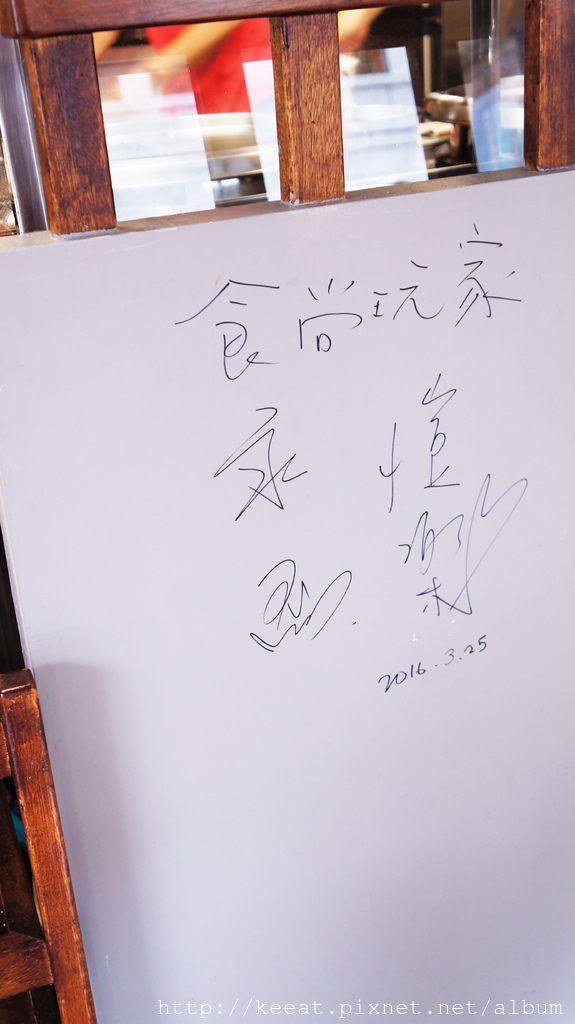 食尚玩家
永 愷
樂
2016.3.25
http://keeat.pixnet.net/album